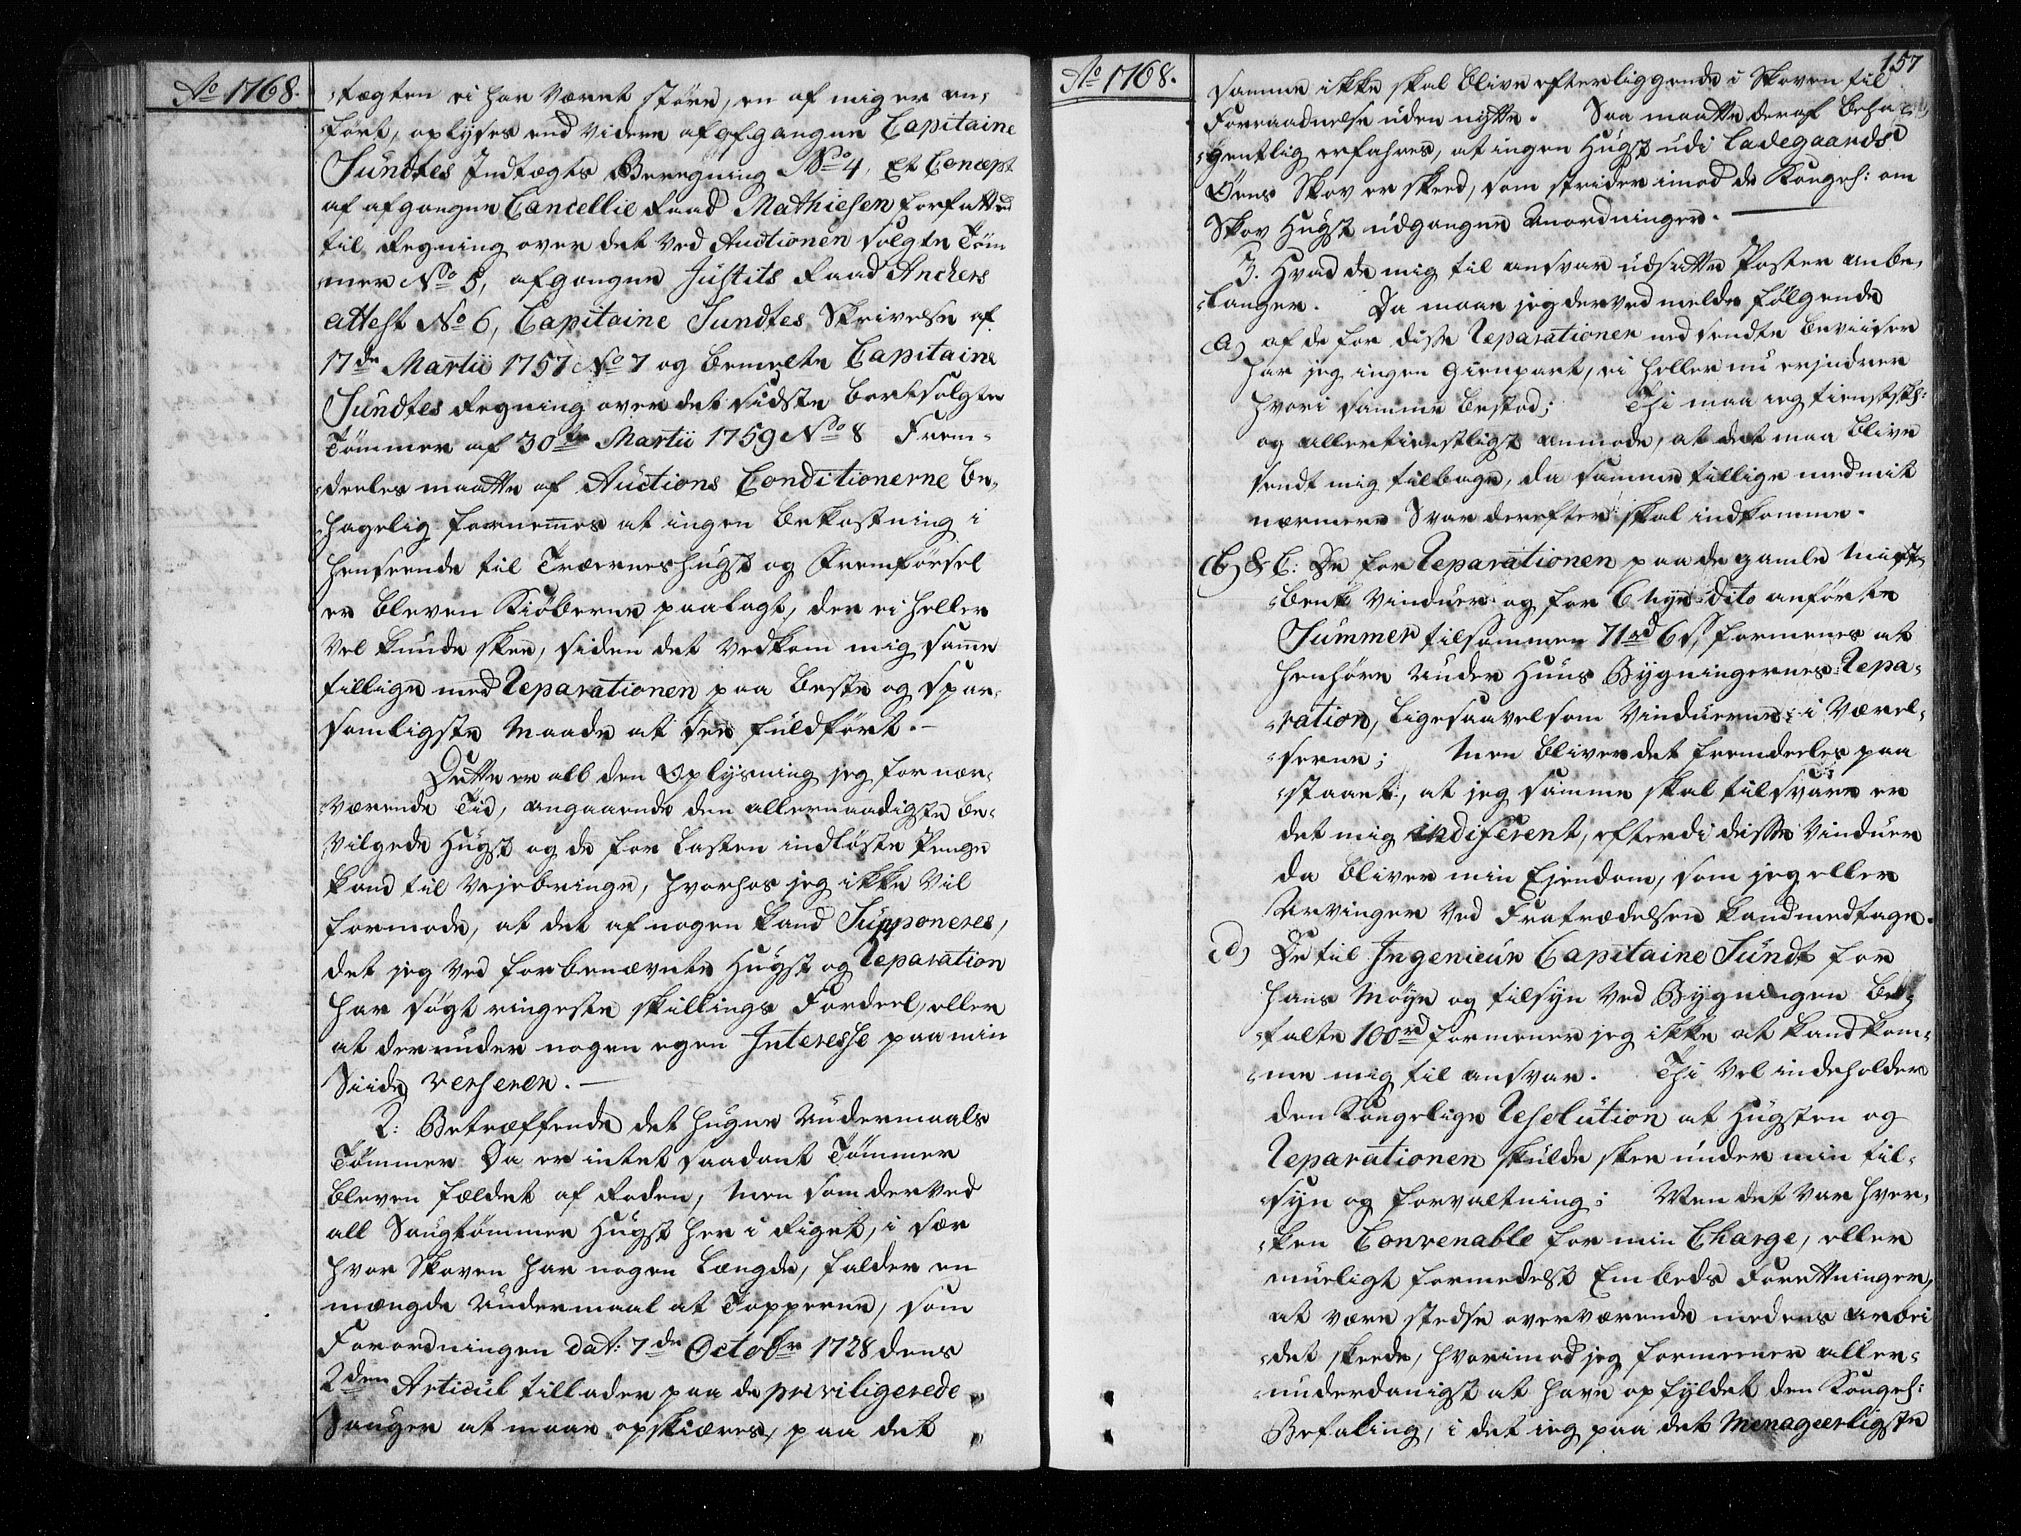 Ao 1768.
-tægten ei har været større, en af mig er an-
-ført, oplyses end videre af afgangne Capitaine
Sundtes Indtægts Beregning No 4, Et Concept
af afgangne Cancellie Raad Mathiesen forfatted
til Regning over det ved Auctionen solgte Töm
-mer No 5, afgangne Justits Raad Anckers
attest No 6, Capitaine Sundtes Skrivelse af
17de Martii 1757 No 7 og bemelte Capitaine
Sundtes Regning over det sidste bortsolgte
Tømmer af 30te Martii 1759 No 8 Frem-
-deeles maatte af Auctions Conditionerne be-
-hagelig fornemmes at ingen bekostning i
henseende til Træernes hugst og Fremførsel
er bleven Kiøberne paalagt, der ei heller
vel kunde skee, siden det vedkom mig samme
tillige med Reparationen paa beste og spar-
-somligste Maade at see fuldført.-
Dette er all den Oplysning jeg for nær-
-værende Tid, angaaende den allernaadigste be-
-vilgede Hugst og de for Lasten indløste Penge
kand til veje bringe, hvorhos jeg ikke vil
formode, at det af nogen kand Supponeres,
det jeg ved forbenævnte Hugst og Reparation
har søgt ringeste skillings Fordeel, eller
at derunder nogen egen Interesse paa min
Siide verserer.-
2: Betræffende det hugne Undermaals
Tømmer Da er intet saadant Tømmer
bleven fældet af Roden, Men som derved
all Saugtømmer Hugst her i Riget, i sær
hvor Skoven har nogen Længde, falder en
mængde Undermaal at Toppene, som
Forordningen dat: 7de Octobr 1728 dens
2den Articul tillader paa de priviligerede
Sauger at maae opskiæres, paa det
157
Ao 1768.
samme ikke skal blive efterliggende i Skoven til
Forraadnelse uden nytte. Saa maatte deraf beha-
-gentlig erfahres, at ingen Hugst udi Ladegaards
Øens Skov er skeed, som strider imod de Kongel: om
Skov Hugst udgangne Anordninger.
3. Hvad de mig til ansvar udsatte Poster anbe-
-langer. Da maae jeg derved melde følgende
a) af de for disse Reparationer nedsendte beviiser
har jeg ingen Gienpart, ei heller nu erindrer
hvori samme bestod; Thi maa jeg tienstsk:
og allertienstligst anmode, at det maa blive
sendt mig tilbage, da samme tillige med mit
nærmere Svar derefter skal indkomme.
b) & C: De for Reparationen paa de gamle Mist-
-benk Vinduer og for 6 nye dito anførte
Summer tilsammen 71rd 6s, formenes at
henhøre under Huus Bygningernes Repa-
-ration, ligesaavel som Vinduerne i Værel-
-serne; Men bliver det fremdeeles paa
-staaet, at jeg samme skal tilsvare er
det mig indiferent, efterdi disse Vinduer
da bliver min Ejendom, som jeg eller
Arvinger ved Fratrædelsen kand medtage.
d) De til Ingenieur Capitaine Sundt for
hans Møye og tilsyn ved Bygningen be-
-talte 100rd formener jeg ikke at kand kom-
-me mig til ansvar. Thi vel indeholder
den Kongelige Resolution at Hugsten og
Reparationen skulde skee under min til-
-syn og forvaltning; Men det var hver-
-ken Convenable for min Charge, eller
mueligt formedelst Embeds Forrettninger,
at være stedse overværende medens arbei
-det skeede, hvorimod jeg formeener aller-
-underdanigst at have opfyldet den Kongel:
Befaling, i det jeg paa det Menageerligste